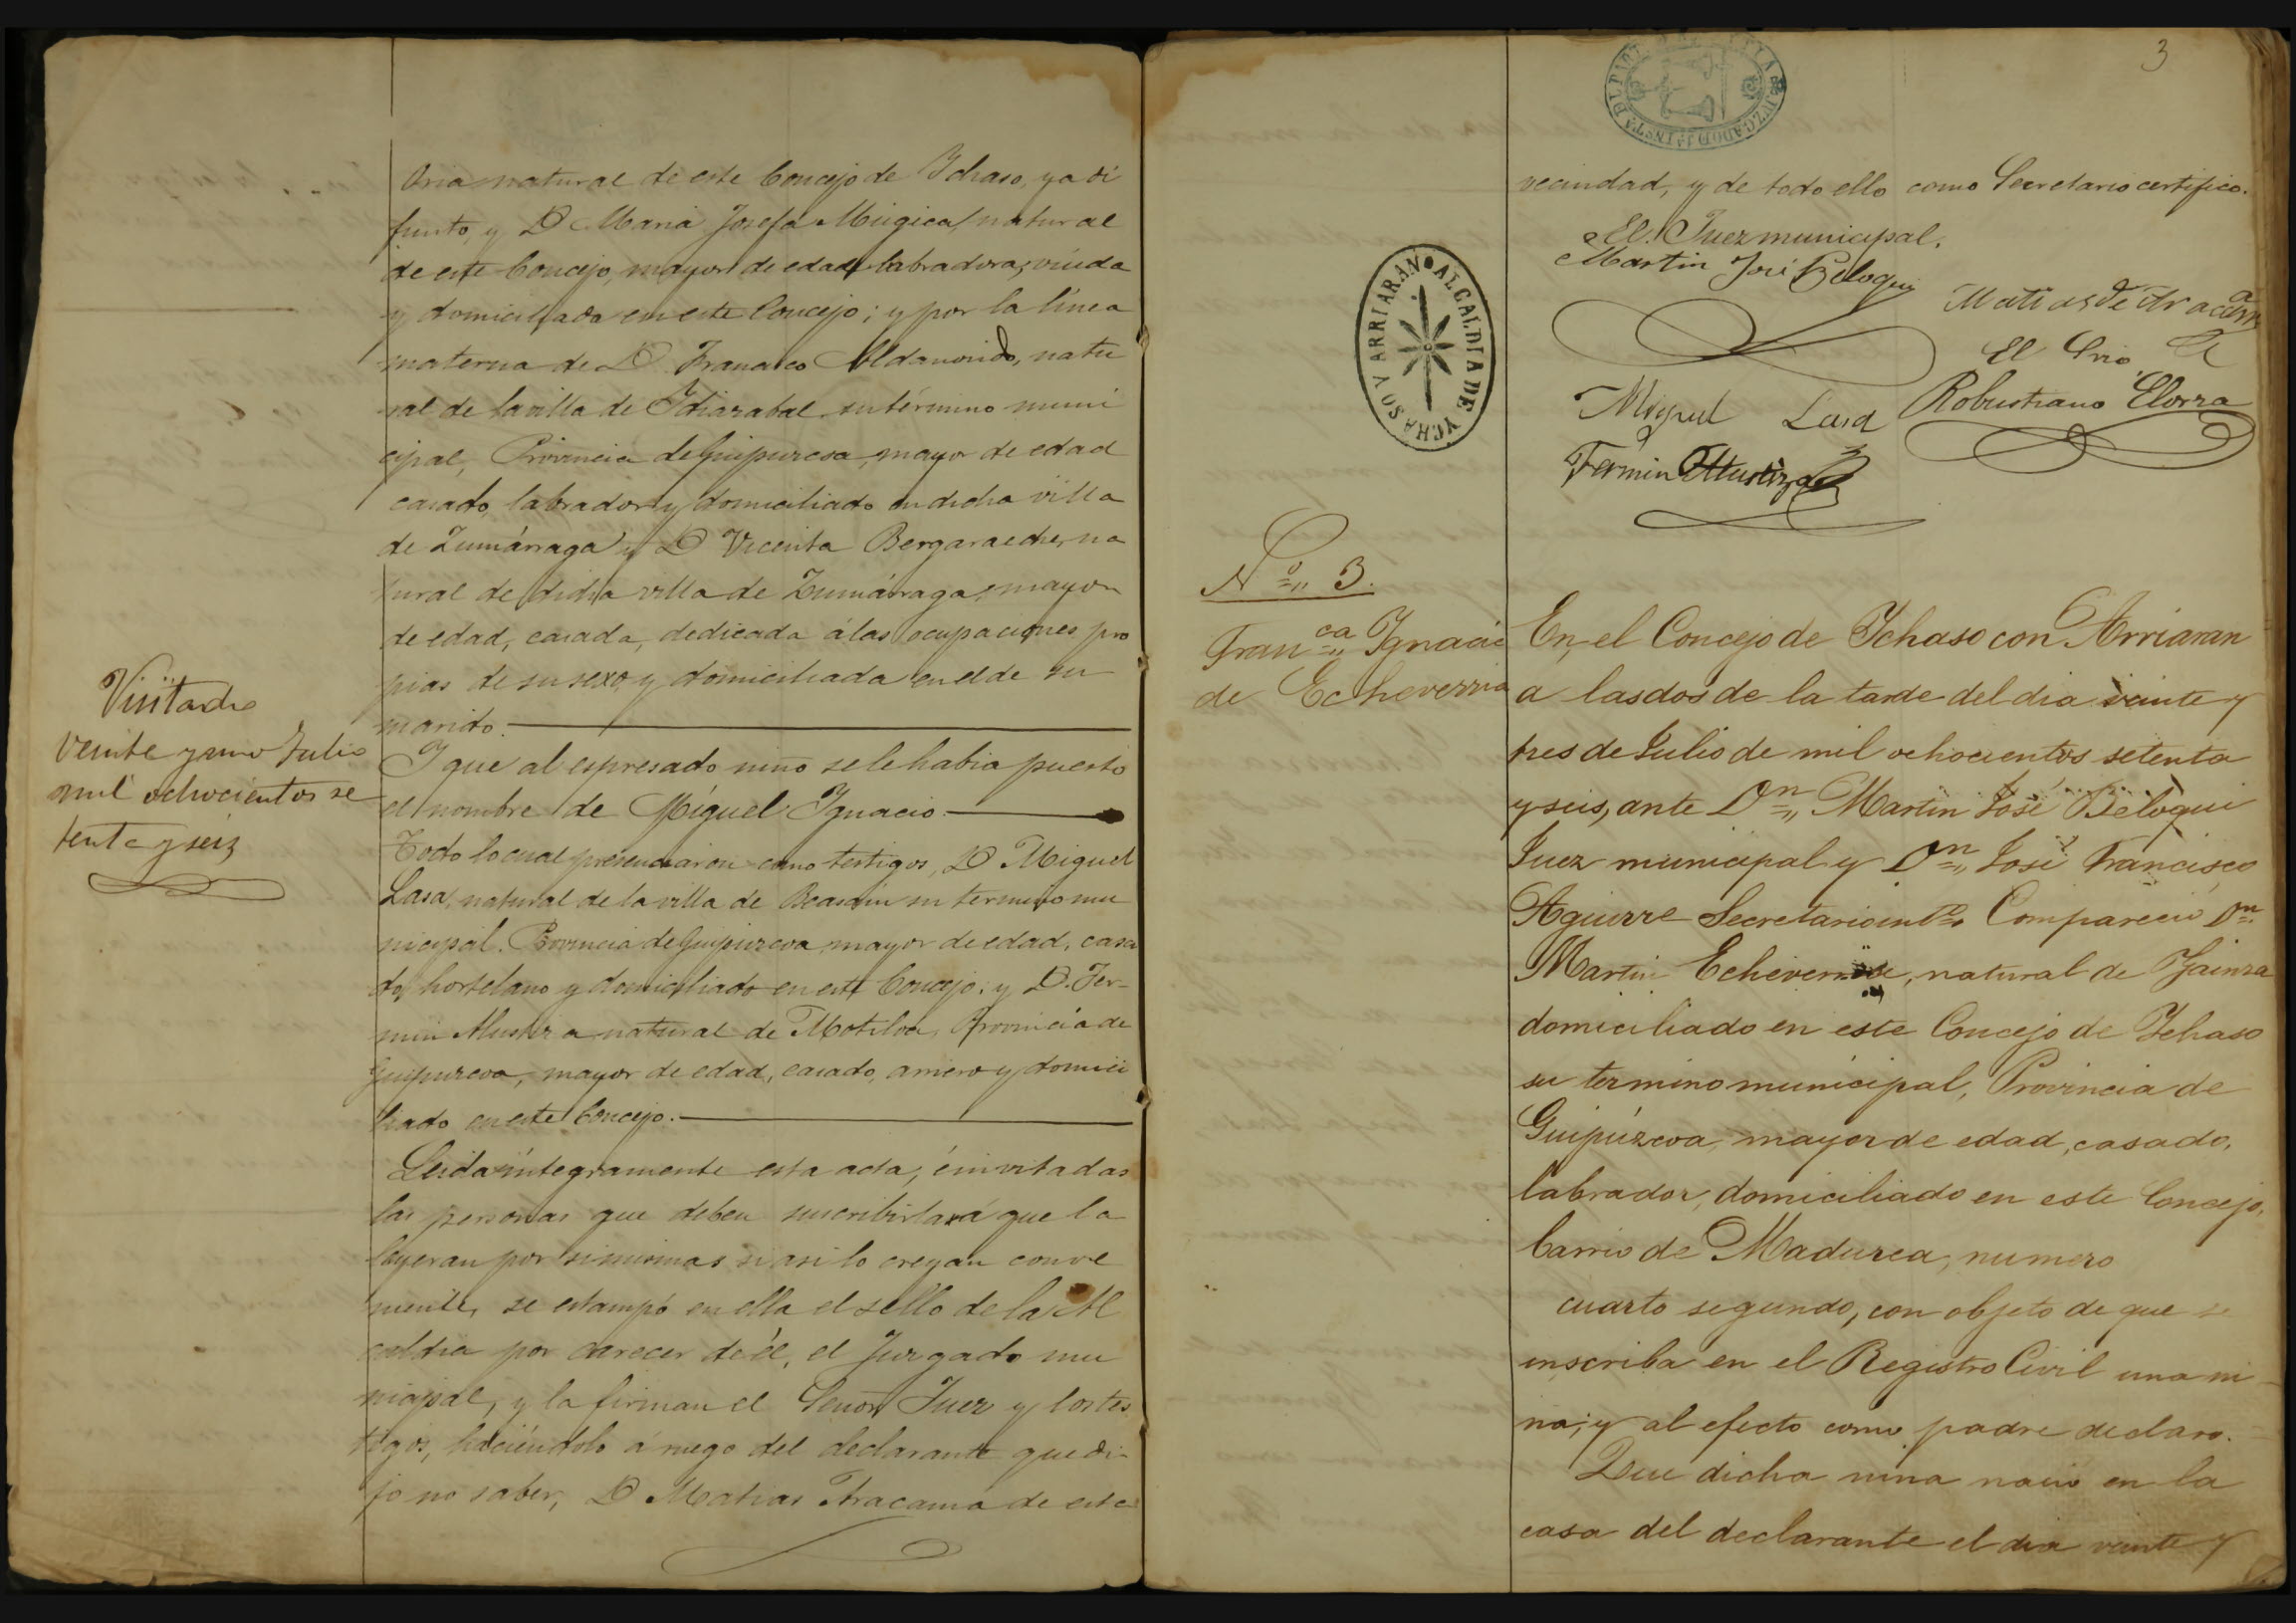 oria natural de este Concejo de Ichaso, ya di
funto, y D Maria Josefa Múgica, natural
de este Concejo, mayor de edad labradora, viuda
y domiciliada en este Concejo; y por la línea
materna de D. Francisco Aldanondo, natu
ral de la villa de Idiazabal su término muni
cipal, Provincia de Guipuzcoa, mayor de edad
casado, labrador y domiciliado en dicha villa
de Zumárraga y D Vicenta Bergaraeche, na
tural de dicha villa de Zumárraga, mayor
de edad, casada, dedicada á las ocupaciones pro
pias de su sexo, y domiciliada en el de su
marido.
Y que al espresado niño se le habia puesto
el nombre de Miguel Ignacio.
Todo lo cual presenciaron como testigos, D Miguel
Lasa, natural de la villa de Beasain su termino mu
nicipal. Provincia de Guipuzcoa mayor de edad, casa
do, hortelano y domiciliado en este Concejo: y D. Fer-
min Alustiza natural de Motiloa, Provincia de
Guipuzcoa, mayor de edad, casado, arriero y domici
liado en este Concejo.
Leida íntegramente esta acta, é invitadas
las personas que deben suscribirla á que la
leyeran por si mismas si asi lo creyan conve
niente, se estampó en ella el sello de la Al
caldia por carecer de él, el Juzgado mu
nicipal, y la firman el Señor Juez y los tes
tigos, haciéndolo á ruego del declarante que di-
jo no saber, D Matias Aracama de esta
Visitado
veinte y uno Julio
mil ochocientos se
tenta y seis
3
JUZGADO DE 1ª INSTA DE PARTIDO
vecindad, y de todo ello como Secretario certifico.
El Juez municipal,
Martin José Beloqui
Matias de Aracama
El Srio
Miguel Lasa
Robustiano Elorza
Fermin Alustiza
ALCALDIA DE YCHASO Y ARRIARAN
Nº 3.
Franca Ignacia
de Echeverria
En el Concejo de Ichaso con Arriaran
a las dos de la tarde del dia veinte y
tres de Julio de mil ochocientos setenta
y seis, ante Dn Martin José Beloqui
Juez municipal y Dn José Francisco
Aguirre Secretario intº Compareció Dn
Martin Echeverria, natural de Gainza
domiciliado en este Concejo de Ichaso
su termino municipal, Provincia de
Guipúzcoa, mayor de edad, casado,
labrador, domiciliado en este Concejo,
barrio de Madurea, numero
cuarto segundo, con objeto de que se
inscriba en el Registro Civil una ni
na; y al efecto como padre declaro.
Que dicha nina nacio en la
casa del declarante el dia veinte y